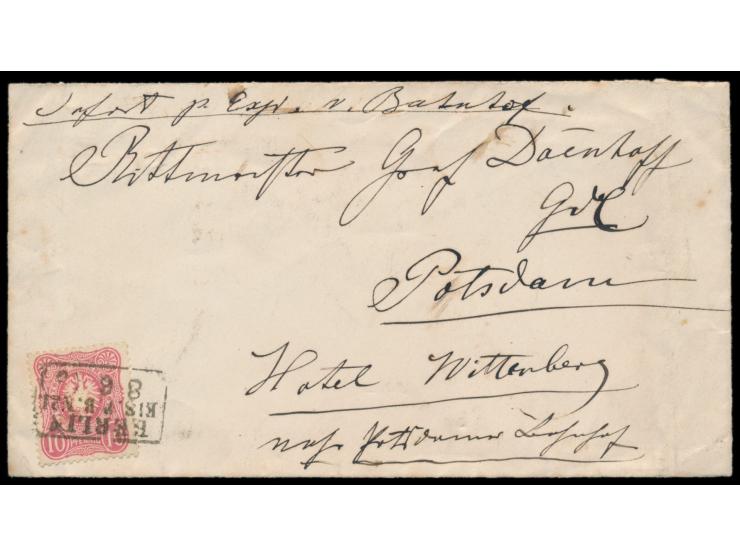 Sofort p. Exp. v. Bahnhof.
Rittmeister Graf Doenhoff
GdC
Potsdam
Hotel Wittenberg
nahe Potsdamer Bahnhof
BERLIN
8 6
10